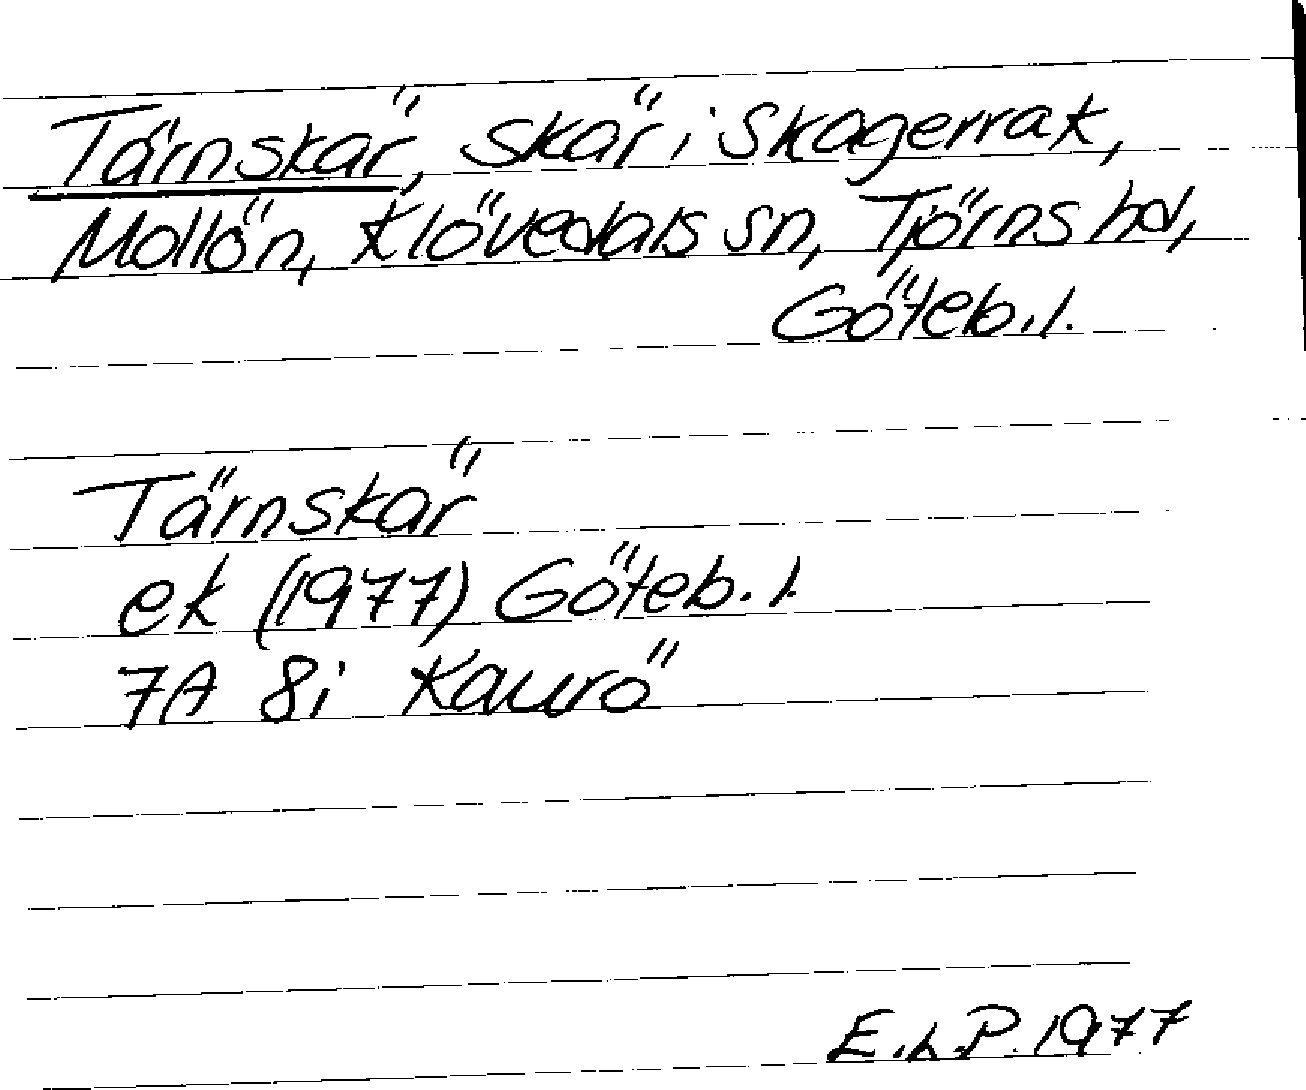 Tärnskär, skär i Skagerrak,
Mollön, Klövedals sn, Tjörns hd,
Göteb. l.
Tärnskär
ek (1977) Göteb. l.
7A 8i Kaurö
E.L.P. 1977